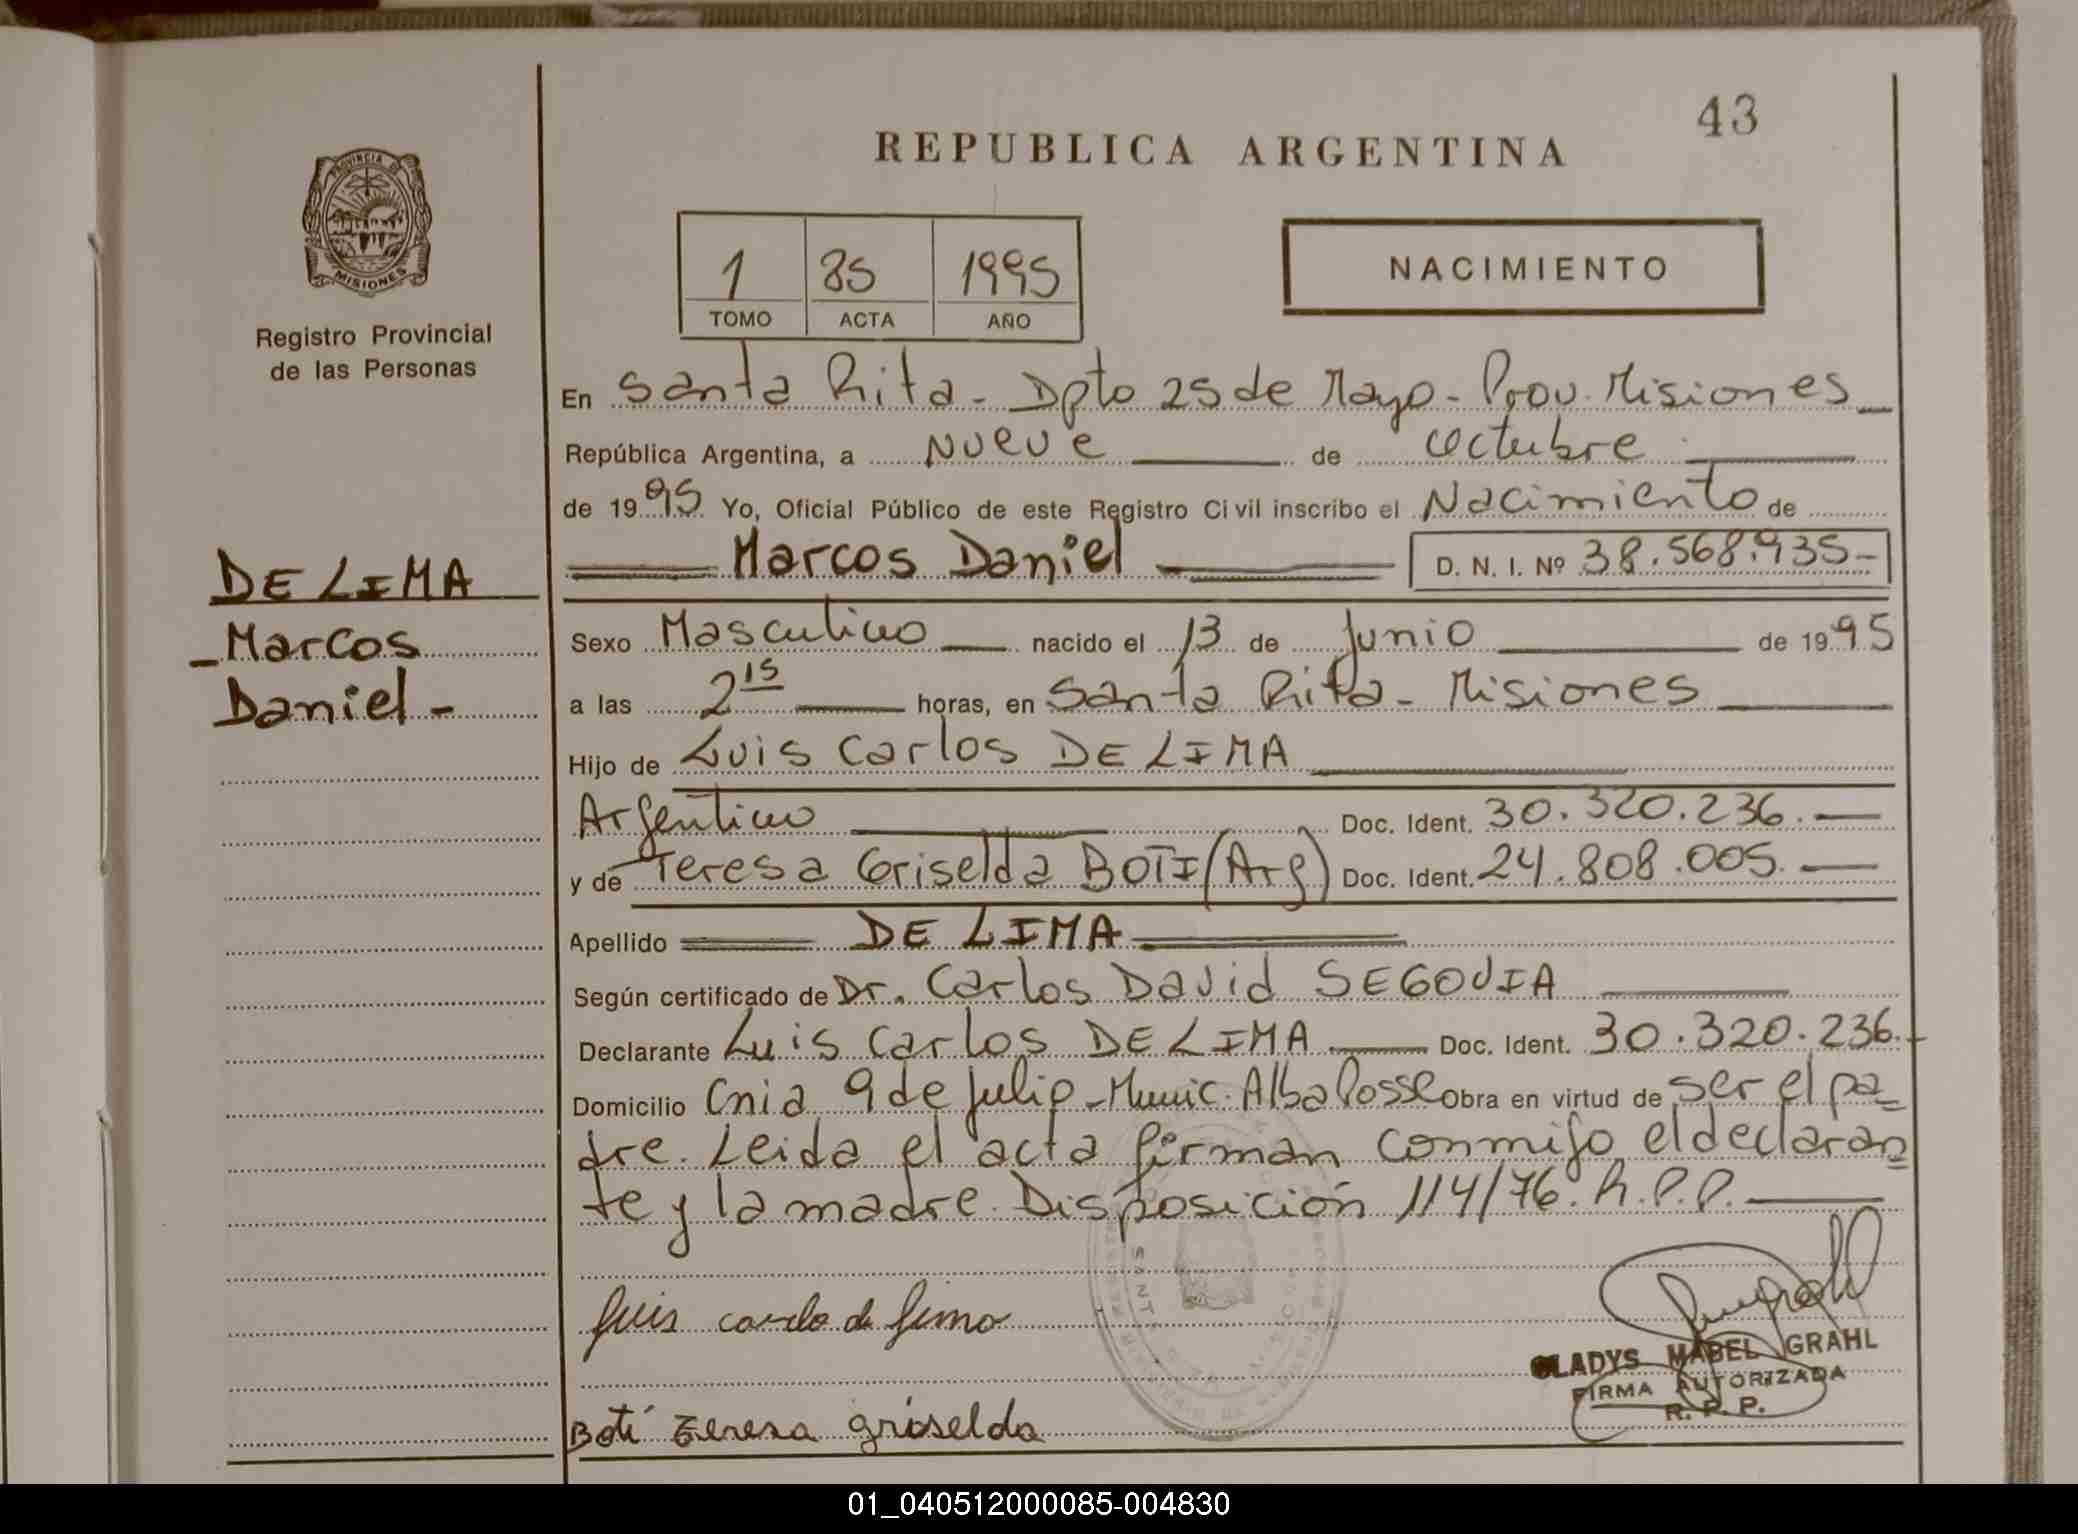 43
REPUBLICA ARGENTINA
PROVINCIA DE
MISIONES
Registro Provincial
de las Personas
1 85 1995
TOMO ACTA AÑO
NACIMIENTO
DE LIMA
Marcos
Daniel -
En Santa Rita - Dpto 25 de Mayo - Prov. Misiones
República Argentina, a Nueve de Octubre
de 1995 Yo, Oficial Público de este Registro Civil inscribo el Nacimiento de
Marcos Daniel D. N. I. Nº 38.568.935-
Sexo Masculino nacido el 13 de Junio de 1995
a las 2 15 horas, en Santa Rita - Misiones
Hijo de Luis Carlos DE LIMA
Argentino Doc. Ident. 30.320.236.
y de Teresa Griselda BOTI (Arg) Doc. Ident. 24.808.005.
Apellido DE LIMA
Según certificado de Dr. Carlos David SEGOVIA
Declarante Luis Carlos DE LIMA Doc. Ident. 30.320.236.
Domicilio Cnia 9 de Julio - Munic. Alba Posse Obra en virtud de ser el pa=
dre. Leida el acta firman conmigo el declaran=
te y la madre. Disposición 114/76. R.P.P.
Luis carlo de lima
GLADYS MABEL GRAHL
FIRMA AUTORIZADA
R. P. P.
Botí Teresa griselda
01_040512000085-004830